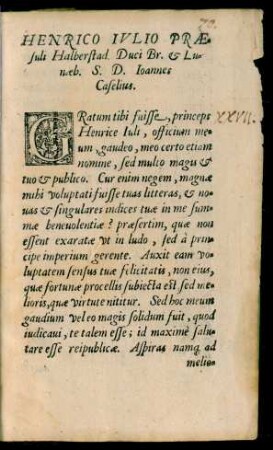 HENRICO IVLIO PRÆ-
suli Halberstad. Duci Br. & Lu-
næb. S. D. Ioannes
Caselius.
GRatum tibi fuisse, princeps
Henrice Iuli, officium me-
um gaudeo, meo certo etiam
nomine, sed multo magis &
tuo & publico. Cur enim negem, magnæ
mihi voluptati fuisse tuas litteras, & no-
uas & singulares indices tuæ in me sum-
mæ beneuolentiæ? præsertim, quæ non
essent exaratæ vt in ludo, sed à prin-
cipe imperium gerente. Auxit eam vo-
luptatem sensus tuæ felicitatis, non eius,
quæ fortunæ procellis subiecta est sed me-
lioris, quæ virtute nititur. Sed hoc meum
gaudium vel eo magis solidum fuit, quod
iudicaui, te talem esse; id maximè salu-
tare esse reipublicæ. Aspiras namq; ad
melio-
XXVII.